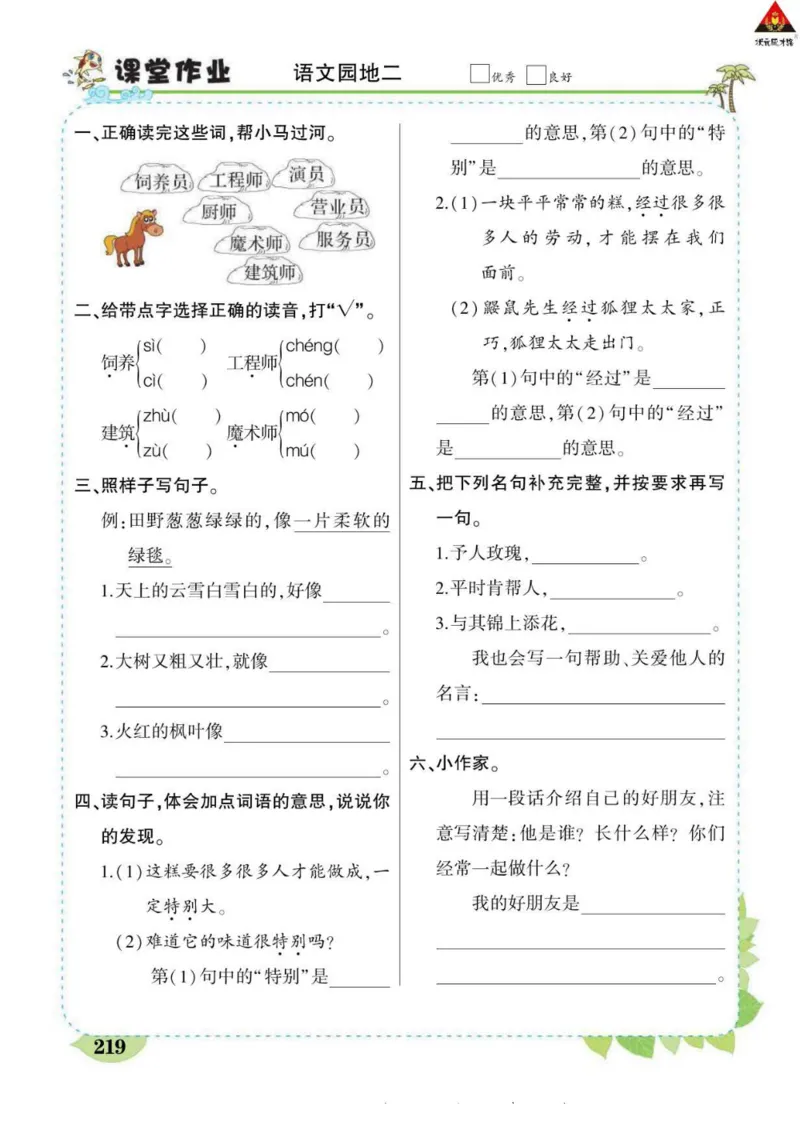 状元成才路
课堂作业
语文园地二
优秀 良好
一、正确读完这些词,帮小马过河。
饲养员 工程师 演员
厨师 营业员
魔术师 服务员
建筑师
二、给带点字选择正确的读音,打“√”。
饲养 sì( ) cì( ) 工程师 chéng( ) chén( )
建筑 zhù( ) zù( ) 魔术师 mó( ) mú( )
三、照样子写句子。
例:田野葱葱绿绿的,像一片柔软的
绿毯。
1.天上的云雪白雪白的,好像________
________。
2.大树又粗又壮,就像________
________。
3.火红的枫叶像________
________。
四、读句子,体会加点词语的意思,说说你
的发现。
1.(1)这糕要很多很多人才能做成,一
定特别大。
(2)难道它的味道很特别吗?
第(1)句中的“特别”是________
________的意思,第(2)句中的“特
别”是________的意思。
2.(1)一块平平常常的糕,经过很多很
多人的劳动,才能摆在我们
面前。
(2)鼹鼠先生经过狐狸太太家,正
巧,狐狸太太走出门。
第(1)句中的“经过”是________
________的意思,第(2)句中的“经过”
是________的意思。
五、把下列名句补充完整,并按要求再写
一句。
1.予人玫瑰,________。
2.平时肯帮人,________。
3.与其锦上添花,________。
我也会写一句帮助、关爱他人的
名言:________
________
六、小作家。
用一段话介绍自己的好朋友,注
意写清楚:他是谁?长什么样?你们
经常一起做什么?
我的好朋友是________
________
________。
219